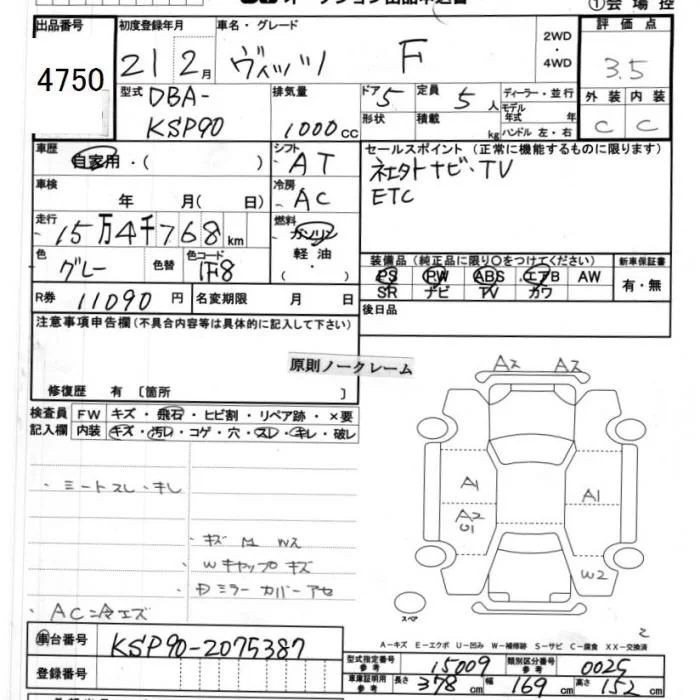 ①会場控
出品番号 初度登録年月 車名・グレード 2WD・4WD 評価点
4750 21 2月 ヴィッツ F 3.5
型式 DBA-KSP90 排気量 1000cc ドア 5 定員 5人 ディーラー・並行 外装 内装
形状 積載 kg モデル年式 年式 ハンドル 左・右 C C
車歴 自家用・( ) シフト AT セールスポイント (正常に機能するものに限ります)
車検 年 月(日) 冷房 AC
ナビ・TV
ETC
走行 15万4千768km 燃料 ガソリン 軽油・( )
色 グレー 色替 色コード 1F8
装備品 (純正品に限り○をつけてください) 新車保証書
PS PW ABS エアB AW 有・無
SR ナビ TV カワ
R券 11090円 名変期限 月 日 後日品
注意事項申告欄(不具合内容等は具体的に記入して下さい)
原則ノークレーム
修復歴 有 〔箇所 〕
検査員記入欄 FW キズ・飛石・ヒビ割・リペア跡・×要
内装 キズ・汚レ・コゲ・穴・スレ・キレ・破レ
A2 A2
A1 A1
A2 U1
W2
・シートスレ・キレ
・キズ M Wス
・Wキャップキズ
・ミラーカバーアセ
・AC
スペア
A-キズ E-エクボ U-凹み W-補修跡 S-サビ C-腐食 XX-交換済
車台番号 KSP90-2075387
登録番号
型式指定番号 参考 15009 類別区分番号 参考 0025
車庫証明用 参考 長さ 378cm 幅 169cm 高さ 152cm